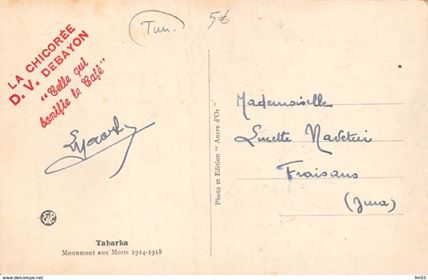 LA CHICORÉE
D. V. DEBAYON
"Celle qui
bonifie le Café"
Tun.
5€
Mademoiselle
Lucette
Fraisans
(Jura)
Photo et Edition "Ancre d'Or"
Tabarka
Monument aux Morts 1914-1918